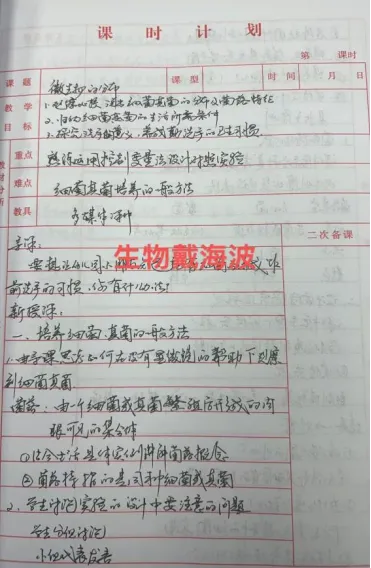 课时计划
第 课时
课题 微生物的分布 课型 时间 月 日
教学目标
1. 处理心照,说出细菌真菌的分布及菌落特征
2. 归纳细菌真菌的生活所需条件
3. 探究洗手的意义,养成勤洗手的好习惯
教材分析
重点 熟练运用控制变量法设计对照实验
难点 细菌真菌培养的一般方法
教具 多媒体课件
二次备课
生物戴海波
导课:
前洗手的习惯,你有什么
新授课:
一、培养细菌、真菌的一般方法
1. 如何在没有显微镜的帮助下观察
到细菌真菌
菌落:由一个细菌或真菌繁殖后形成的肉
眼可见的集合体
①结合生活具体实例讲解菌落概念
②菌落特指的是同种细菌或真菌
2. 学生讨论实验的设计中要注意的问题
学生分组讨论
小组代表发言